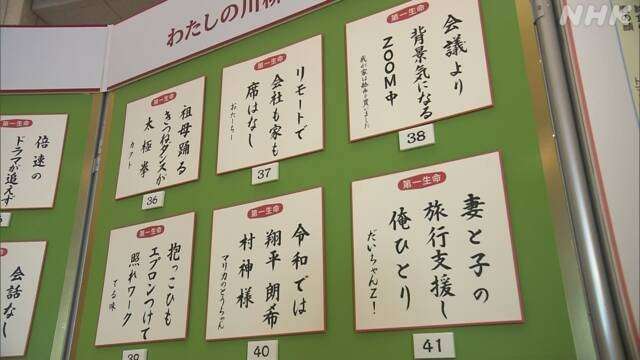 NHK
わたしの川柳
第一生命
会議より
背景気になる
ZOOM中
38
第一生命
リモートで
会社も家も
席はなし
おたーちー
37
第一生命
祖母踊る
きつねダンスが
太極拳
カブト
36
倍速の
ドラマが追えず
第一生命
妻と子の
旅行支援し
俺ひとり
だいちゃんZ！
41
第一生命
令和では
翔平 朗希
村神様
マリカのとうちゃん
40
第一生命
抱っこひも
エプロンつけて
照れワーク
てる味
39
会話なし